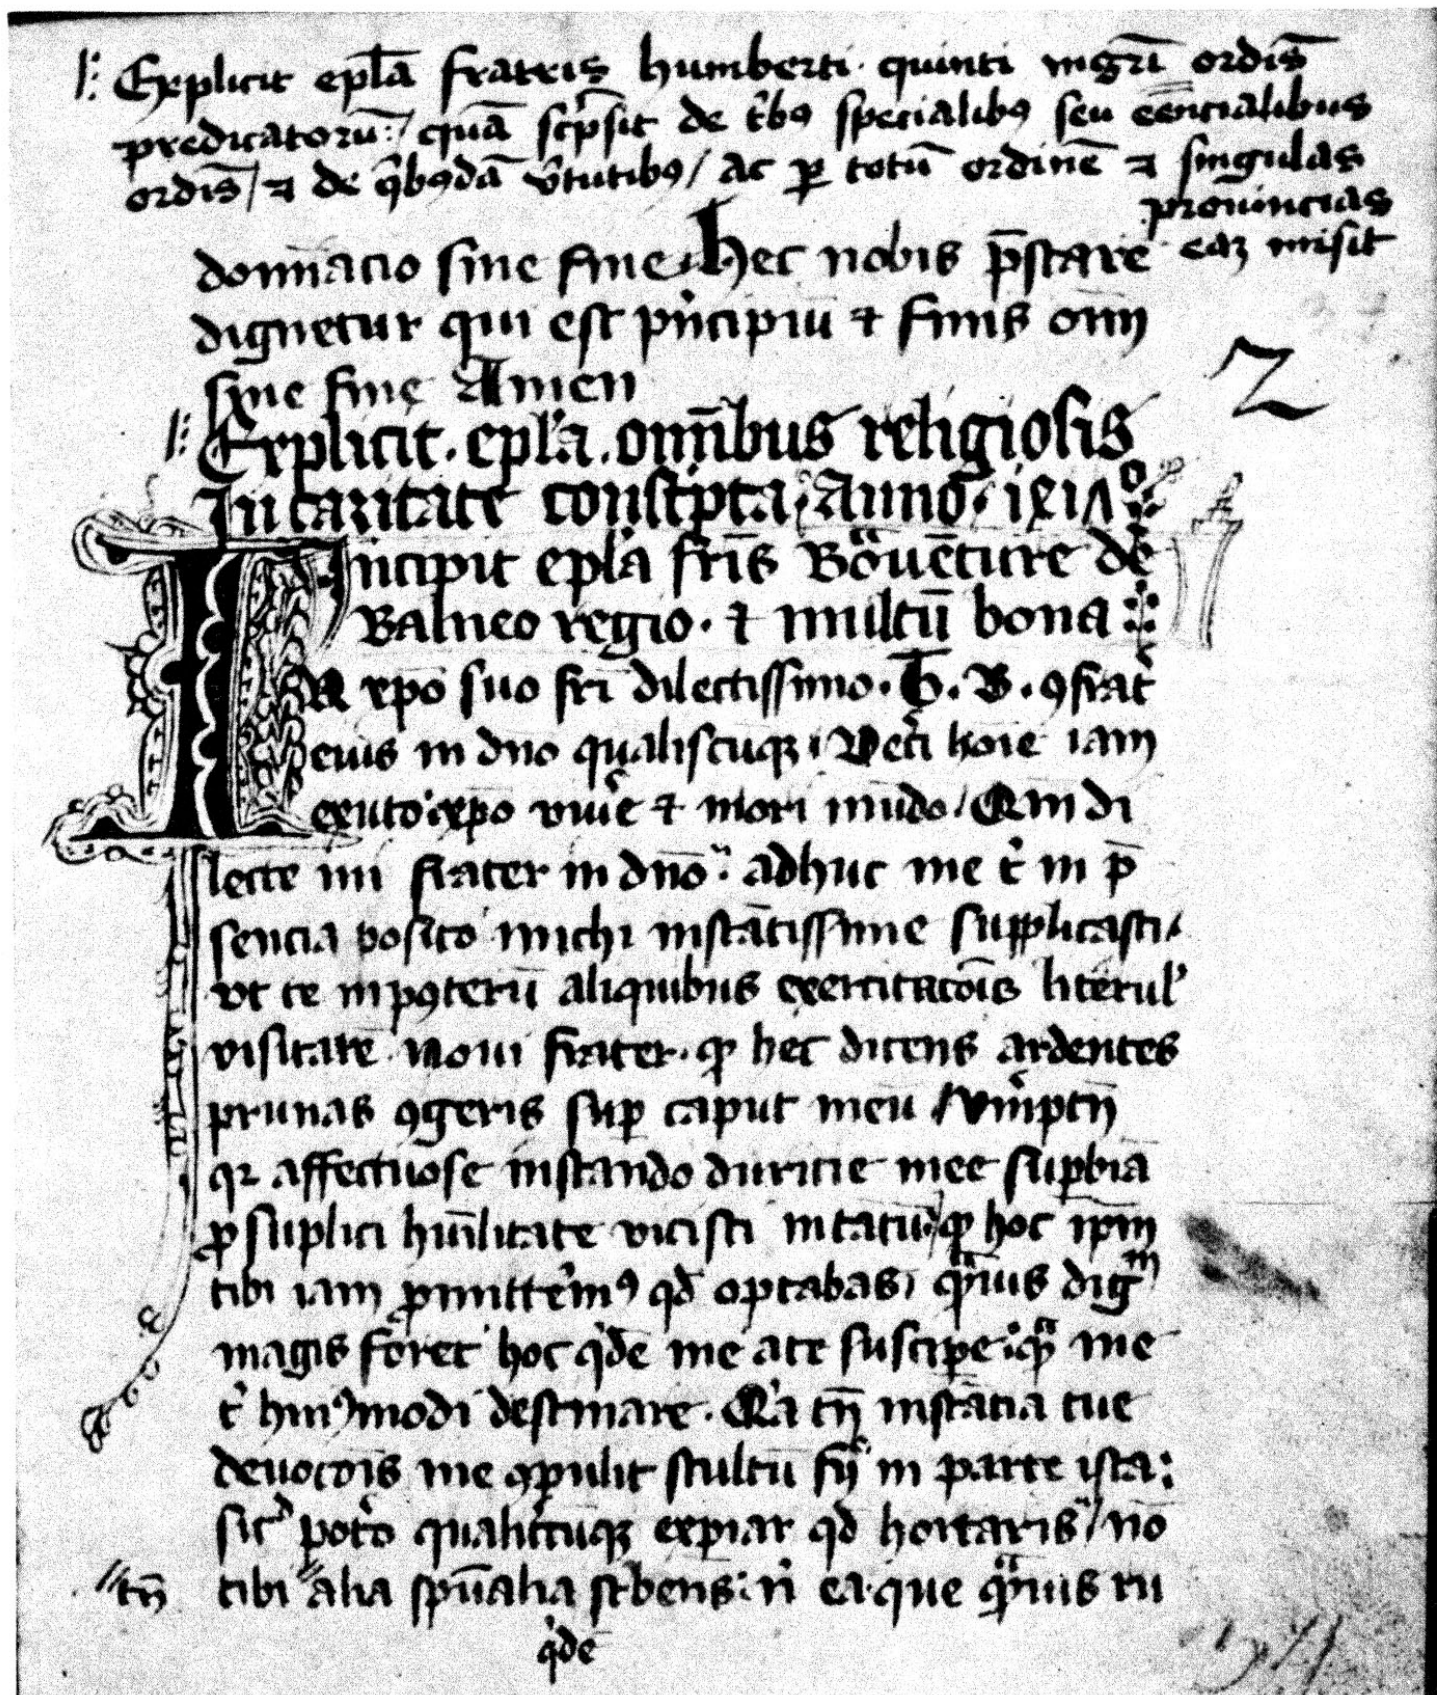 Explicit epl̄a fratris humberti quinti mgr̄i ordīs
predicatorū: / quā sc̄psit de t'bꝰ specialibꝰ seu eēncialibus
ordīs / ⁊ de q'bꝰdā v'tutibꝰ / ac ꝑ totū ordinē ⁊ singulas
prouincias
eaꝫ misit
domīacio sine fine. Hec nobis p̄stare
dignetur qui est p'ncipiū ⁊ finis oīm
sine fine Amen
Explicit. epl̄a. om̄ibus religiosis
In caritate consc̄pta. Anno.
Incipit epl̄a fr̄is Bōuēture de
Balneo regio. ⁊ multū bona
IN xp̄o suo fr̄i dilectissimo. B. ꝯfrat'
eius in dn̄o qualiscūqꝫ. Vet'i hoīe iam
exuto xp̄o viu'e ⁊ mori mūdo / Qm̄ di
lecte mi frater in dn̄o adhuc me t' in p̄
sencia posito michi instātissime supplicasti /
vt te inpꝯterū aliquibus exercitacōīs literul'
visitarē Noui frater. ꝙ hec dicens ardentes
prunas ꝯgeris suꝑ caput meū
qꝛ affectuose instando duricie mee suꝑbiā
ꝓ suplici hūilitate vicisti intātū / ꝙ hoc ip̄m
tibi iam ꝓmitt'emꝰ qd̄ optabas, qᵃuis digᵐ
magis foret hoc q'dē me a te suscipe: qᵃ me
t' huiꝰmodi destinare. Q'a tn̄ instācia tue
deuocōīs me ꝯpulit stultū in parte ista:
sic' pot'o qualit'cūqꝫ expiar qd̄ hortaris / nō
tn̄ tibi alia spūalia sc'bens: n' ea que qᵃuis tu
q'dē